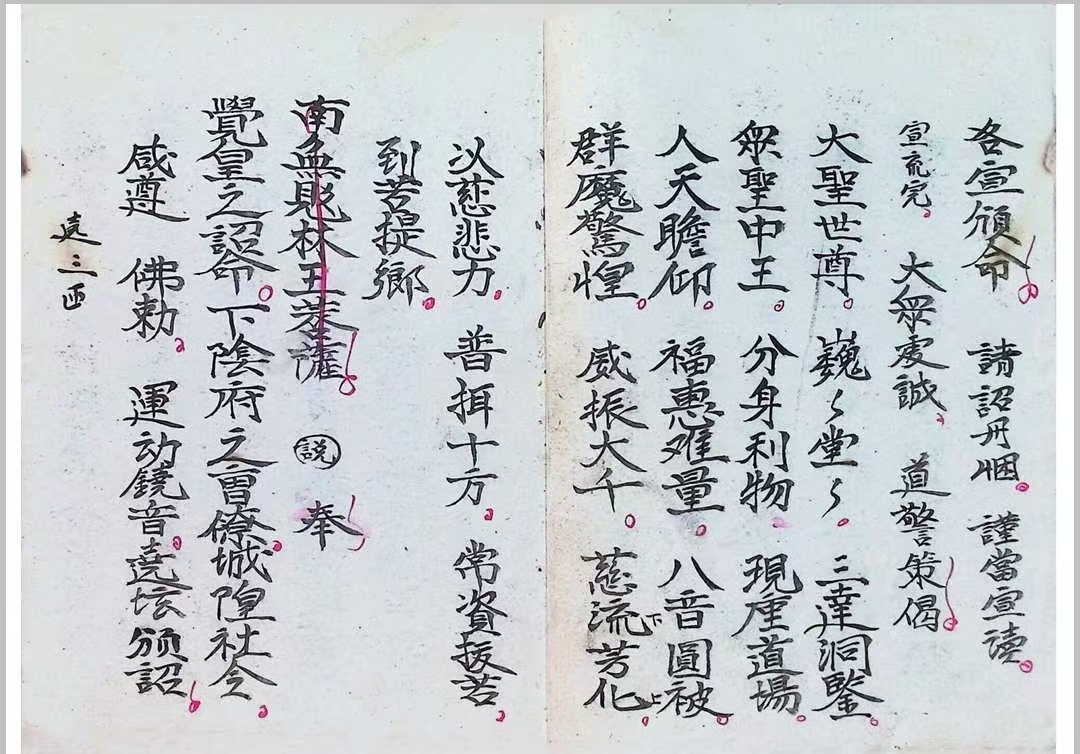 各宣頒命。請詔丹悃。謹當宣讀。
宣疏完。大眾虔誠。道警策偈。
大聖世尊。巍〻堂〻。三達洞鑒。
衆聖中王。分身利物。現座道場。
人天瞻仰。福惠难量。八音圓被。
群魔驚惶。威振大千。慈流芳化。下上
以慈悲力。普拑十方。常資拔苦。
到菩提鄉。
南無毘林王菩薩。説奉
覺皇之詔命。下陰府之曹僚。城隍社令。
咸遵佛勅。運动鐃音。遶坛頒詔。
遶三匝